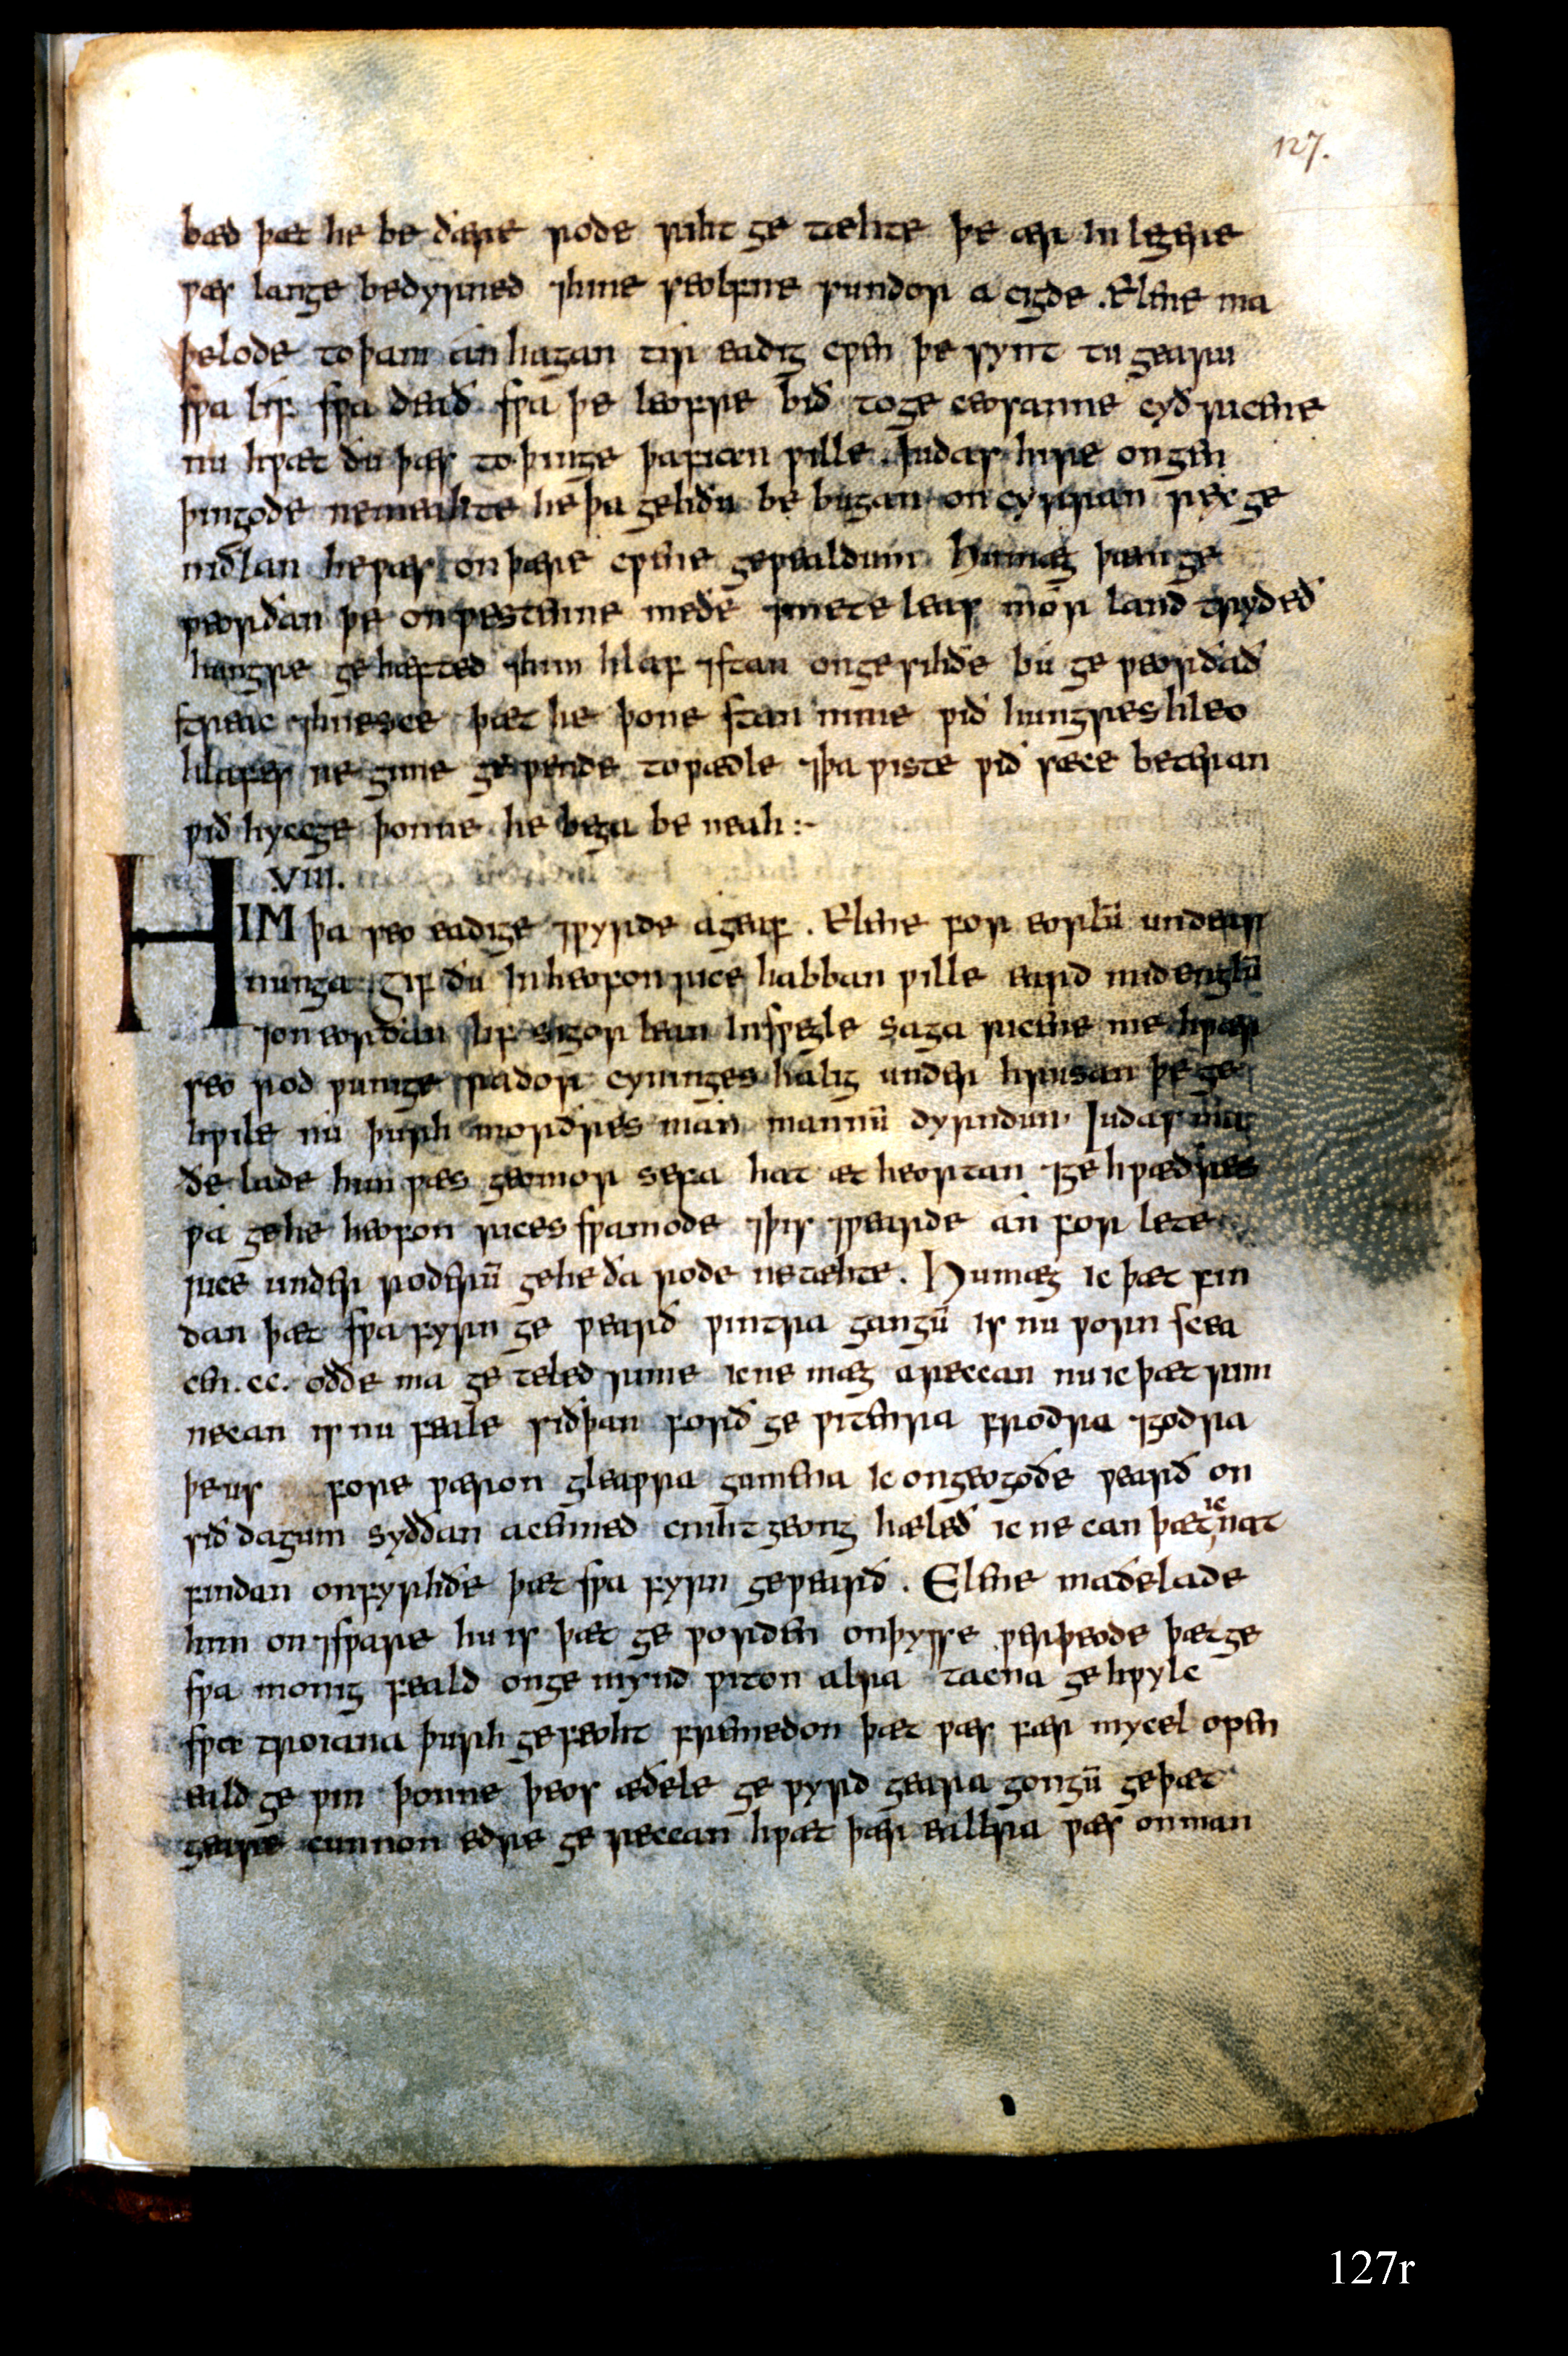 127.
bæd þæt he be ðære rode riht ge tæhte þe ær in legere
ƿæs lange bedyrned ⁊hine seolfne sundor a cigde . Elene ma
þelode to þam án hagan tir eadig cƿen þe synt tu gearu
sƿa líf sƿa deað sƿa þe leofre bið toge ceosanne cyð ricene
nu hƿæt ðu þæs to þinge þafian ƿille . Iudas hire ongen
þingode nemeahte he þa gehðu be bugan oncyrran rex ge
niðlan he ƿæs onþære cƿene geƿealdum Humæg þæm ge
ƿeorðan þe onƿestenne meðe ⁊meteleas mór land trydeð
hungre gehæfted ⁊him hlaf ⁊stan ongesihðe bú ge ƿeorðað
streac ⁊hnesce þæt he þone stan nime ƿið hungres hleo
hlafes ne gime geƿende toƿædle ⁊þa ƿiste ƿið sæce beteran
ƿið hycge þonne he bega be neah :-
.VIII.
HIM þa seo eadige ⁊ƿyrde ágeaf . Elene for eorlū undear
nunga gif ðu inheofonrice habban ƿille eard mid englū
⁊oneorðan lif sigor lean insƿegle saga ricene me hƿær
seo rod ƿunige radorcyninges halig under hrusan þe ge
hƿile nú þurh morðres mán mannū dyrndun Iudas ma
ðelade him ƿæs geomor sefa hat æt heortan ⁊gehƿæðres
ƿá gehe heofonrices sƿamode ⁊þis ⁊ƿearde án for lete
rice under roderū gehe ða rode netæhte . Humæg ic þæt fin
dan þæt sƿa fyrn ge ƿearð ƿintra gangū is nu ƿorn scea
cen .cc. oððe ma ge teled rime icne mæg areccan nu ic þæt rim
necan is nu feale siðþan forð ge ƿitenra frodra ⁊godra
þe us fore ƿæron gleaƿra gumena ic ongeogoðe ƿearð on
sið dagum syððan acenned cniht geong hæleð ic ne can þæt ic nat
findan onfyrhðe þæt sƿa fyrn geƿearð . Elene maðelade
him on⁊sƿare hu is þæt ge ƿorden onþysse ƿerþeode þætge
sƿa monig feald onge mynd ƿiton alra tacna gehƿylc
sƿa troiana þurh gefeoht fremedon þæt ƿæs fær mycel open
eald ge ƿin þonne þeos æðele ge ƿyrd geara gongū ge þæt
geare cunnon edre ge reccan hƿæt þær eallra ƿæs onman
127r